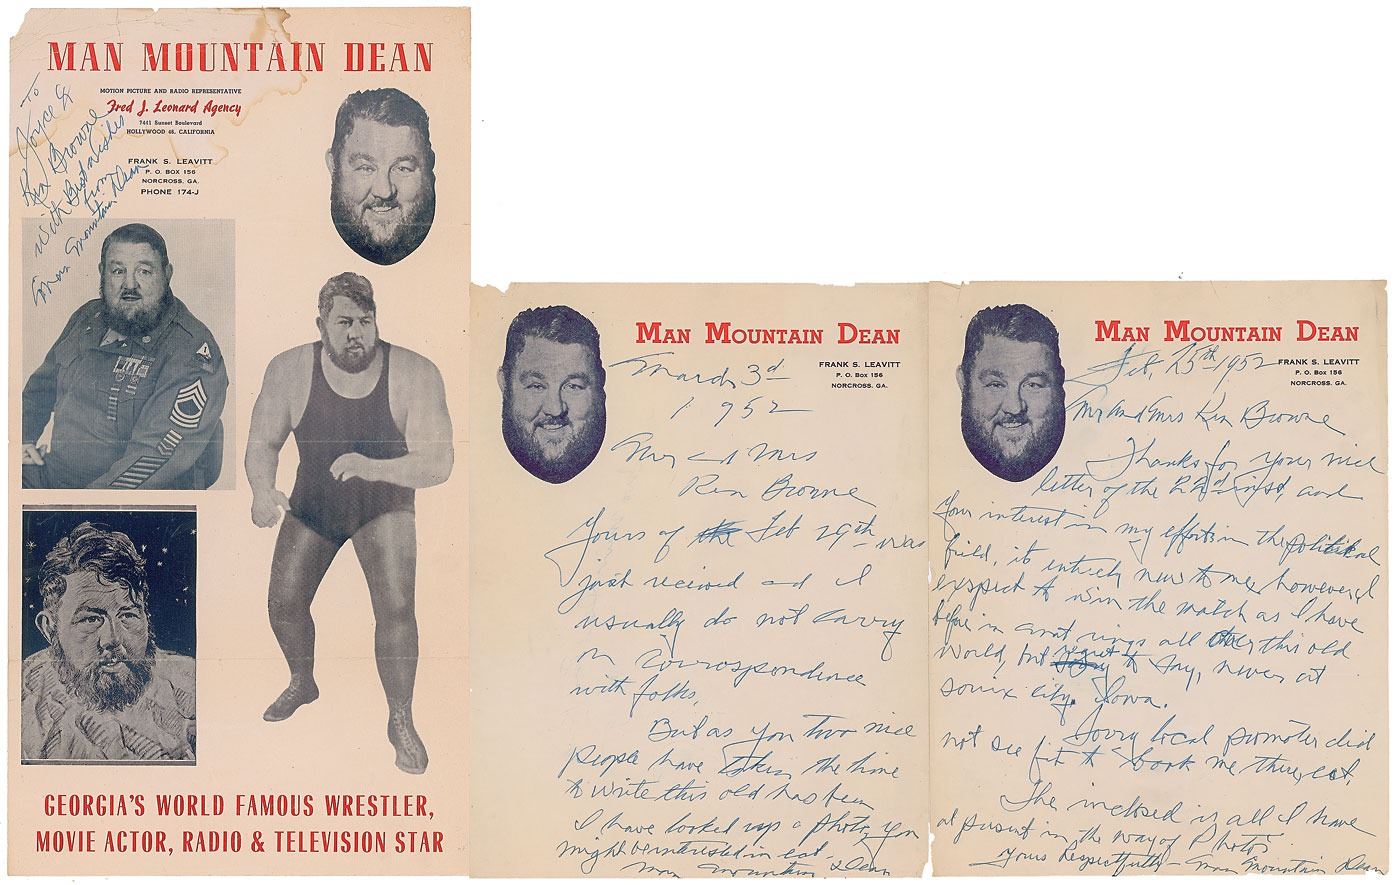 MAN MOUNTAIN DEAN
MOTION PICTURE AND RADIO REPRESENTATIVE
Fred J. Leonard Agency
7441 Sunset Boulevard
HOLLYWOOD 46, CALIFORNIA
FRANK S. LEAVITT
P. O. BOX 156
NORCROSS, GA.
PHONE 174-J
To
Joyce &
Rex Browne
with Best Wishes
from
Man Mountain Dean
GEORGIA'S WORLD FAMOUS WRESTLER,
MOVIE ACTOR, RADIO & TELEVISION STAR
MAN MOUNTAIN DEAN
FRANK S. LEAVITT
P. O. Box 156
NORCROSS, GA.
March 3d
1952
Mr and Mrs
Rex Browne
Yours of the Feb 29th was
just received and I
usually do not carry
on correspondence
with folks.
But as you two nice
people have taken the time
to write this old has been
I have looked up a photo, you
might be interested in
Man Mountain Dean
MAN MOUNTAIN DEAN
FRANK S. LEAVITT
P. O. Box 156
NORCROSS, GA.
Feb, 25th 1952
Mr and Mrs Rex Browne
Thanks for your nice
letter of the 22d inst, and
your interest in my efforts in the political
field, its entirely new to me, however I
expect to win the match as I have
before in rings all over this old
world, but regret to say, never at
Sioux City, Iowa.
Sorry local promoter did
not see fit to book me there,
The inclosed is all I have
at present in the way of Photos
Yours Respectfully Man Mountain Dean